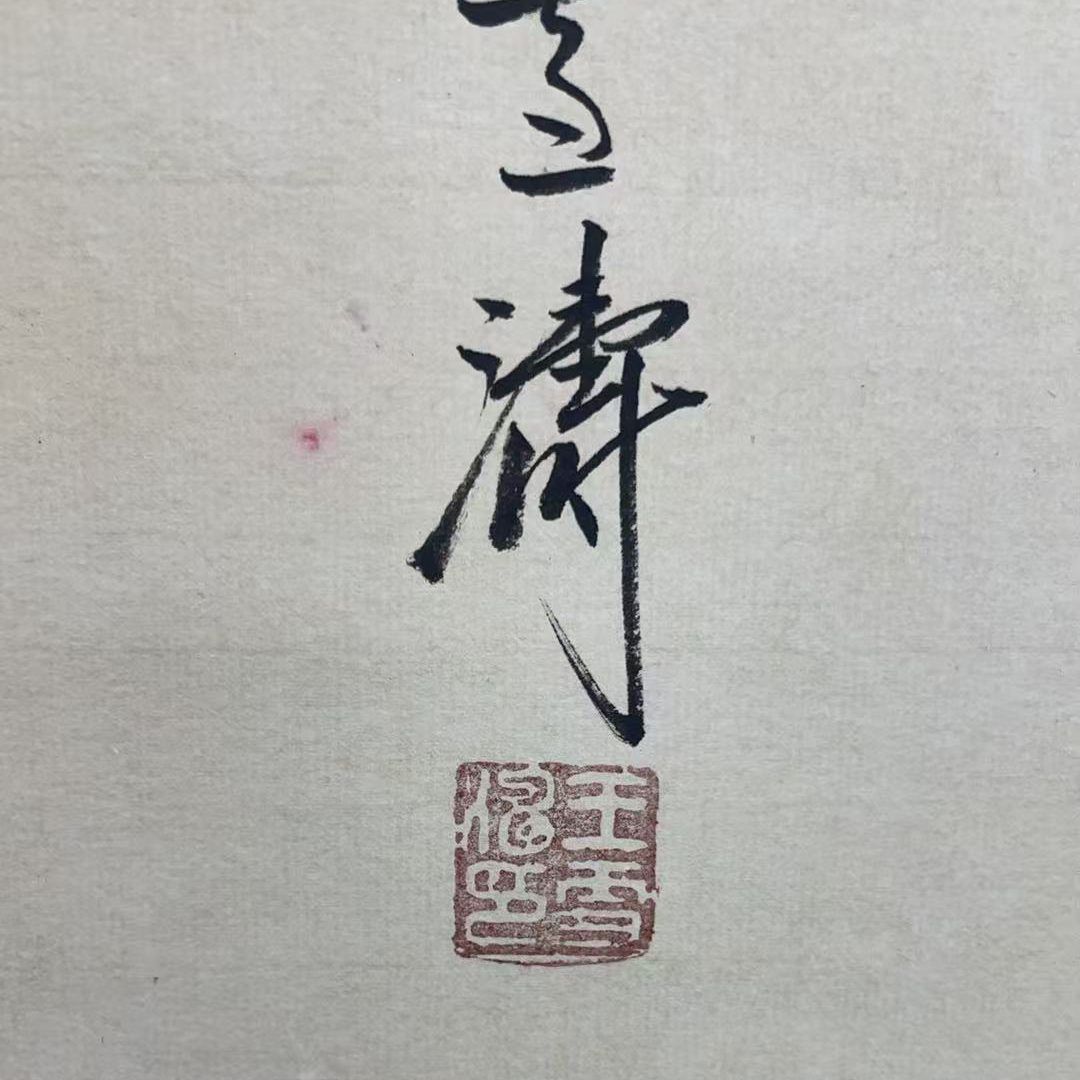 雪濤
王雪濤印